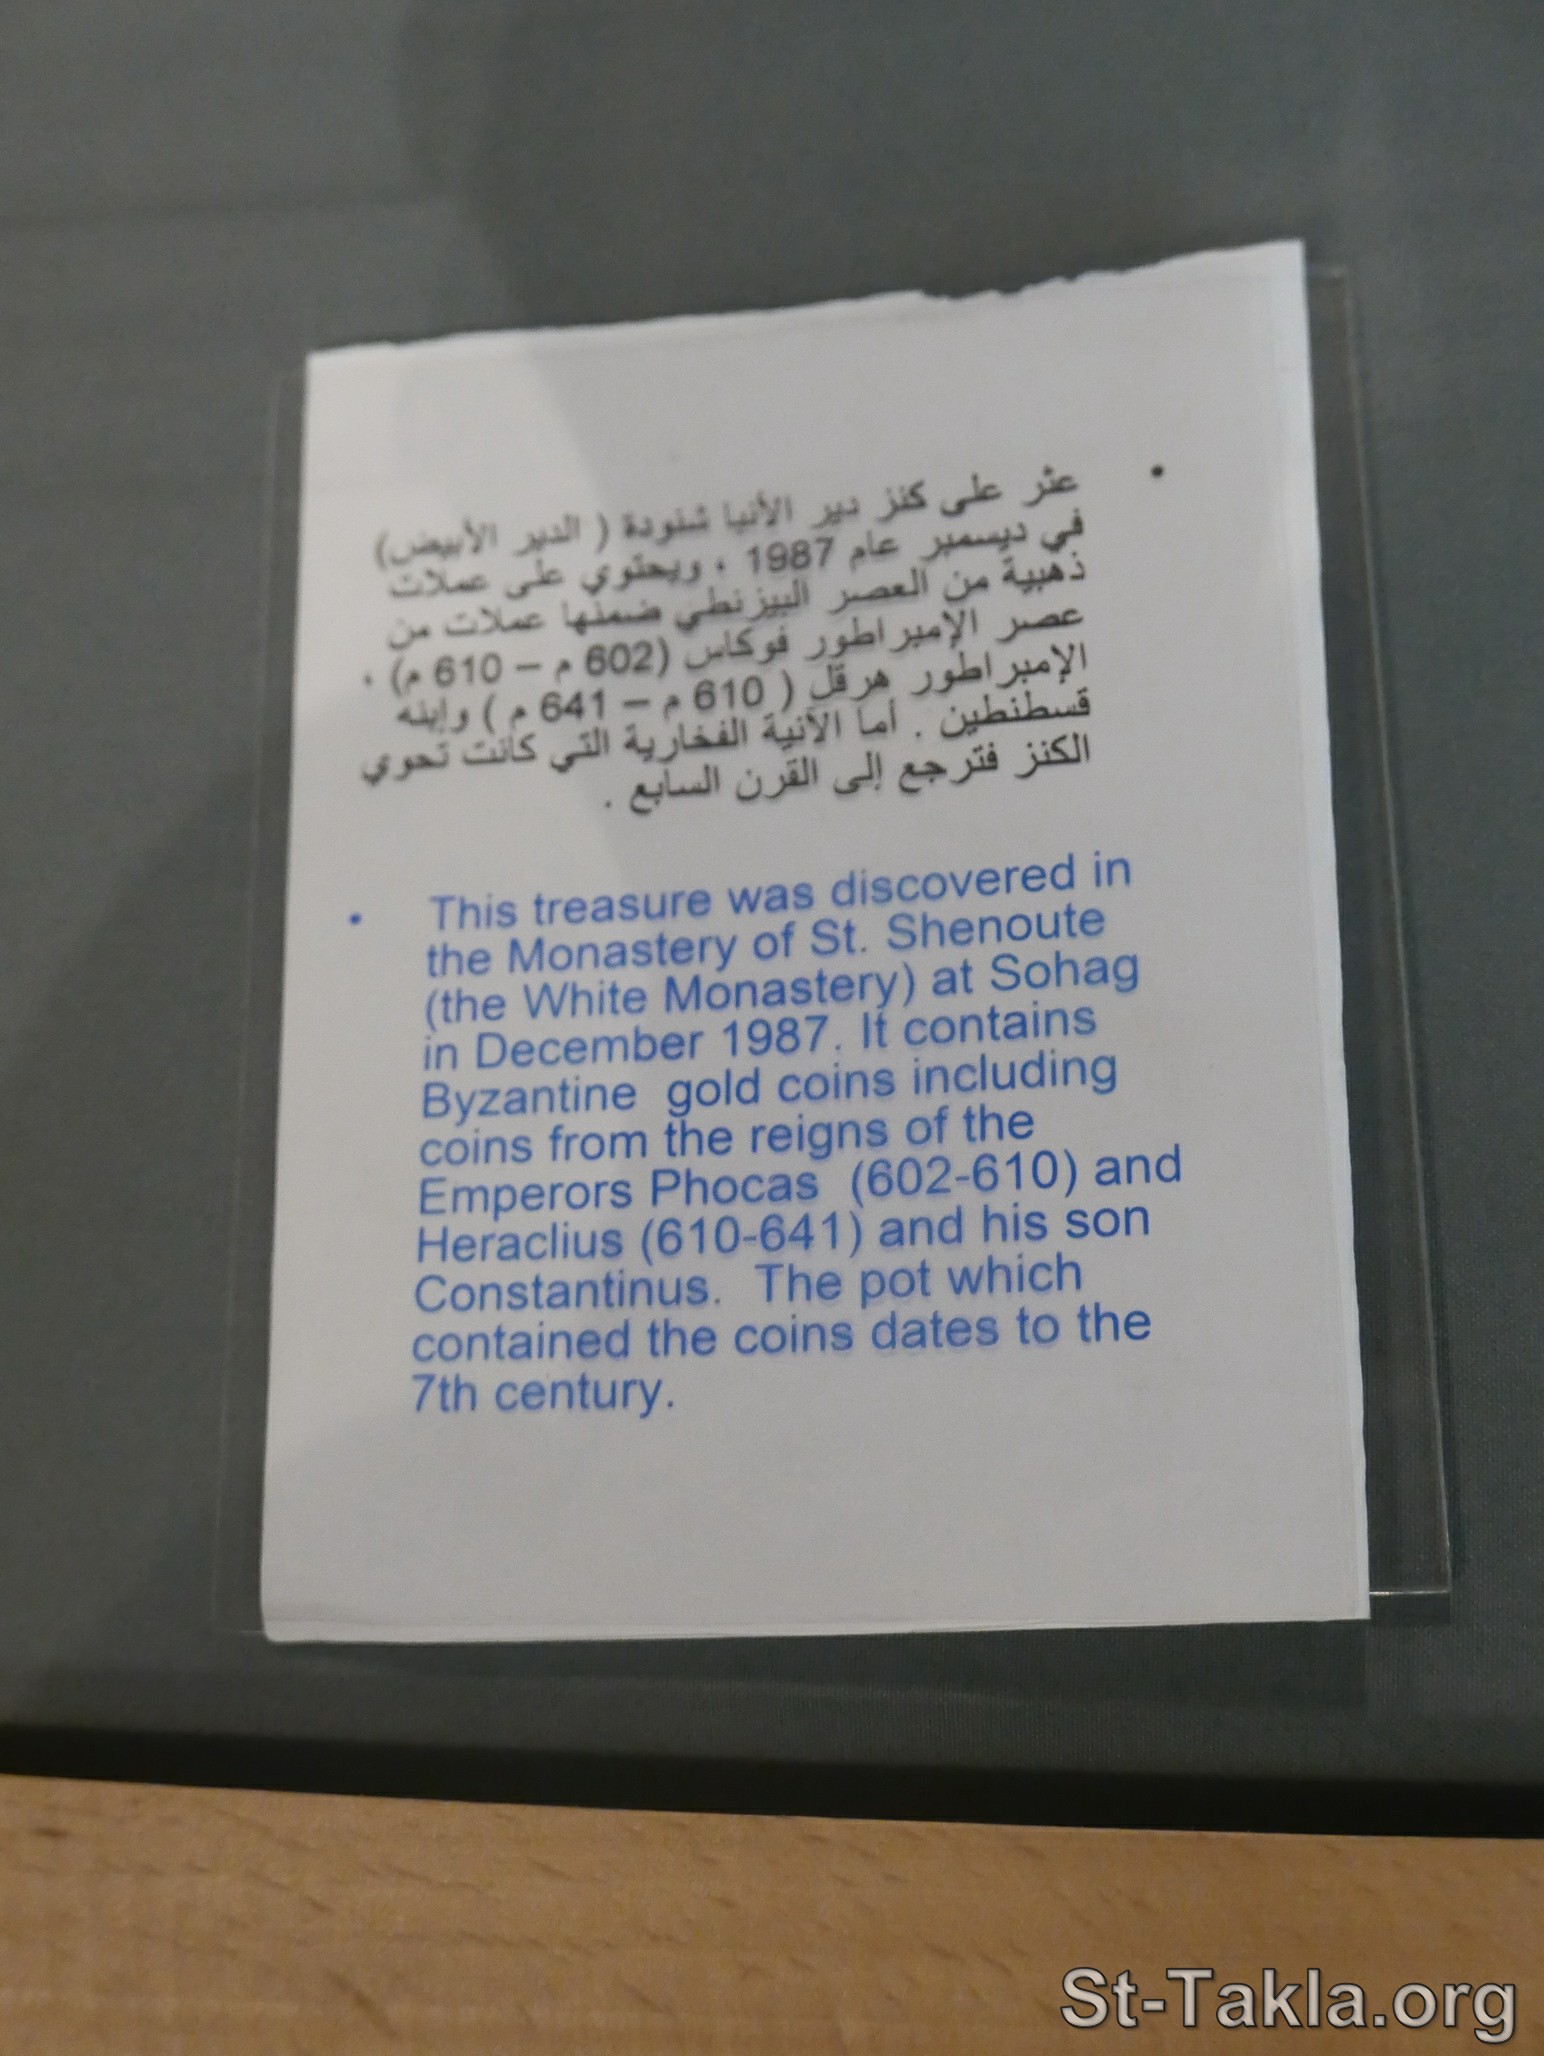 • عثر على كنز دير الأنبا شنودة ( الدير الأبيض)
في ديسمبر عام 1987 ، ويحتوي على عملات
ذهبية من العصر البيزنطي ضمنها عملات من
عصر الإمبراطور فوكاس (602 م – 610 م) ،
الإمبراطور هرقل ( 610 م – 641 م ) وإبنه
قسطنطين . أما الآنية الفخارية التي كانت تحوي
الكنز فترجع إلى القرن السابع .
• This treasure was discovered in
the Monastery of St. Shenoute
(the White Monastery) at Sohag
in December 1987. It contains
Byzantine gold coins including
coins from the reigns of the
Emperors Phocas (602-610) and
Heraclius (610-641) and his son
Constantinus. The pot which
contained the coins dates to the
7th century.
St-Takla.org